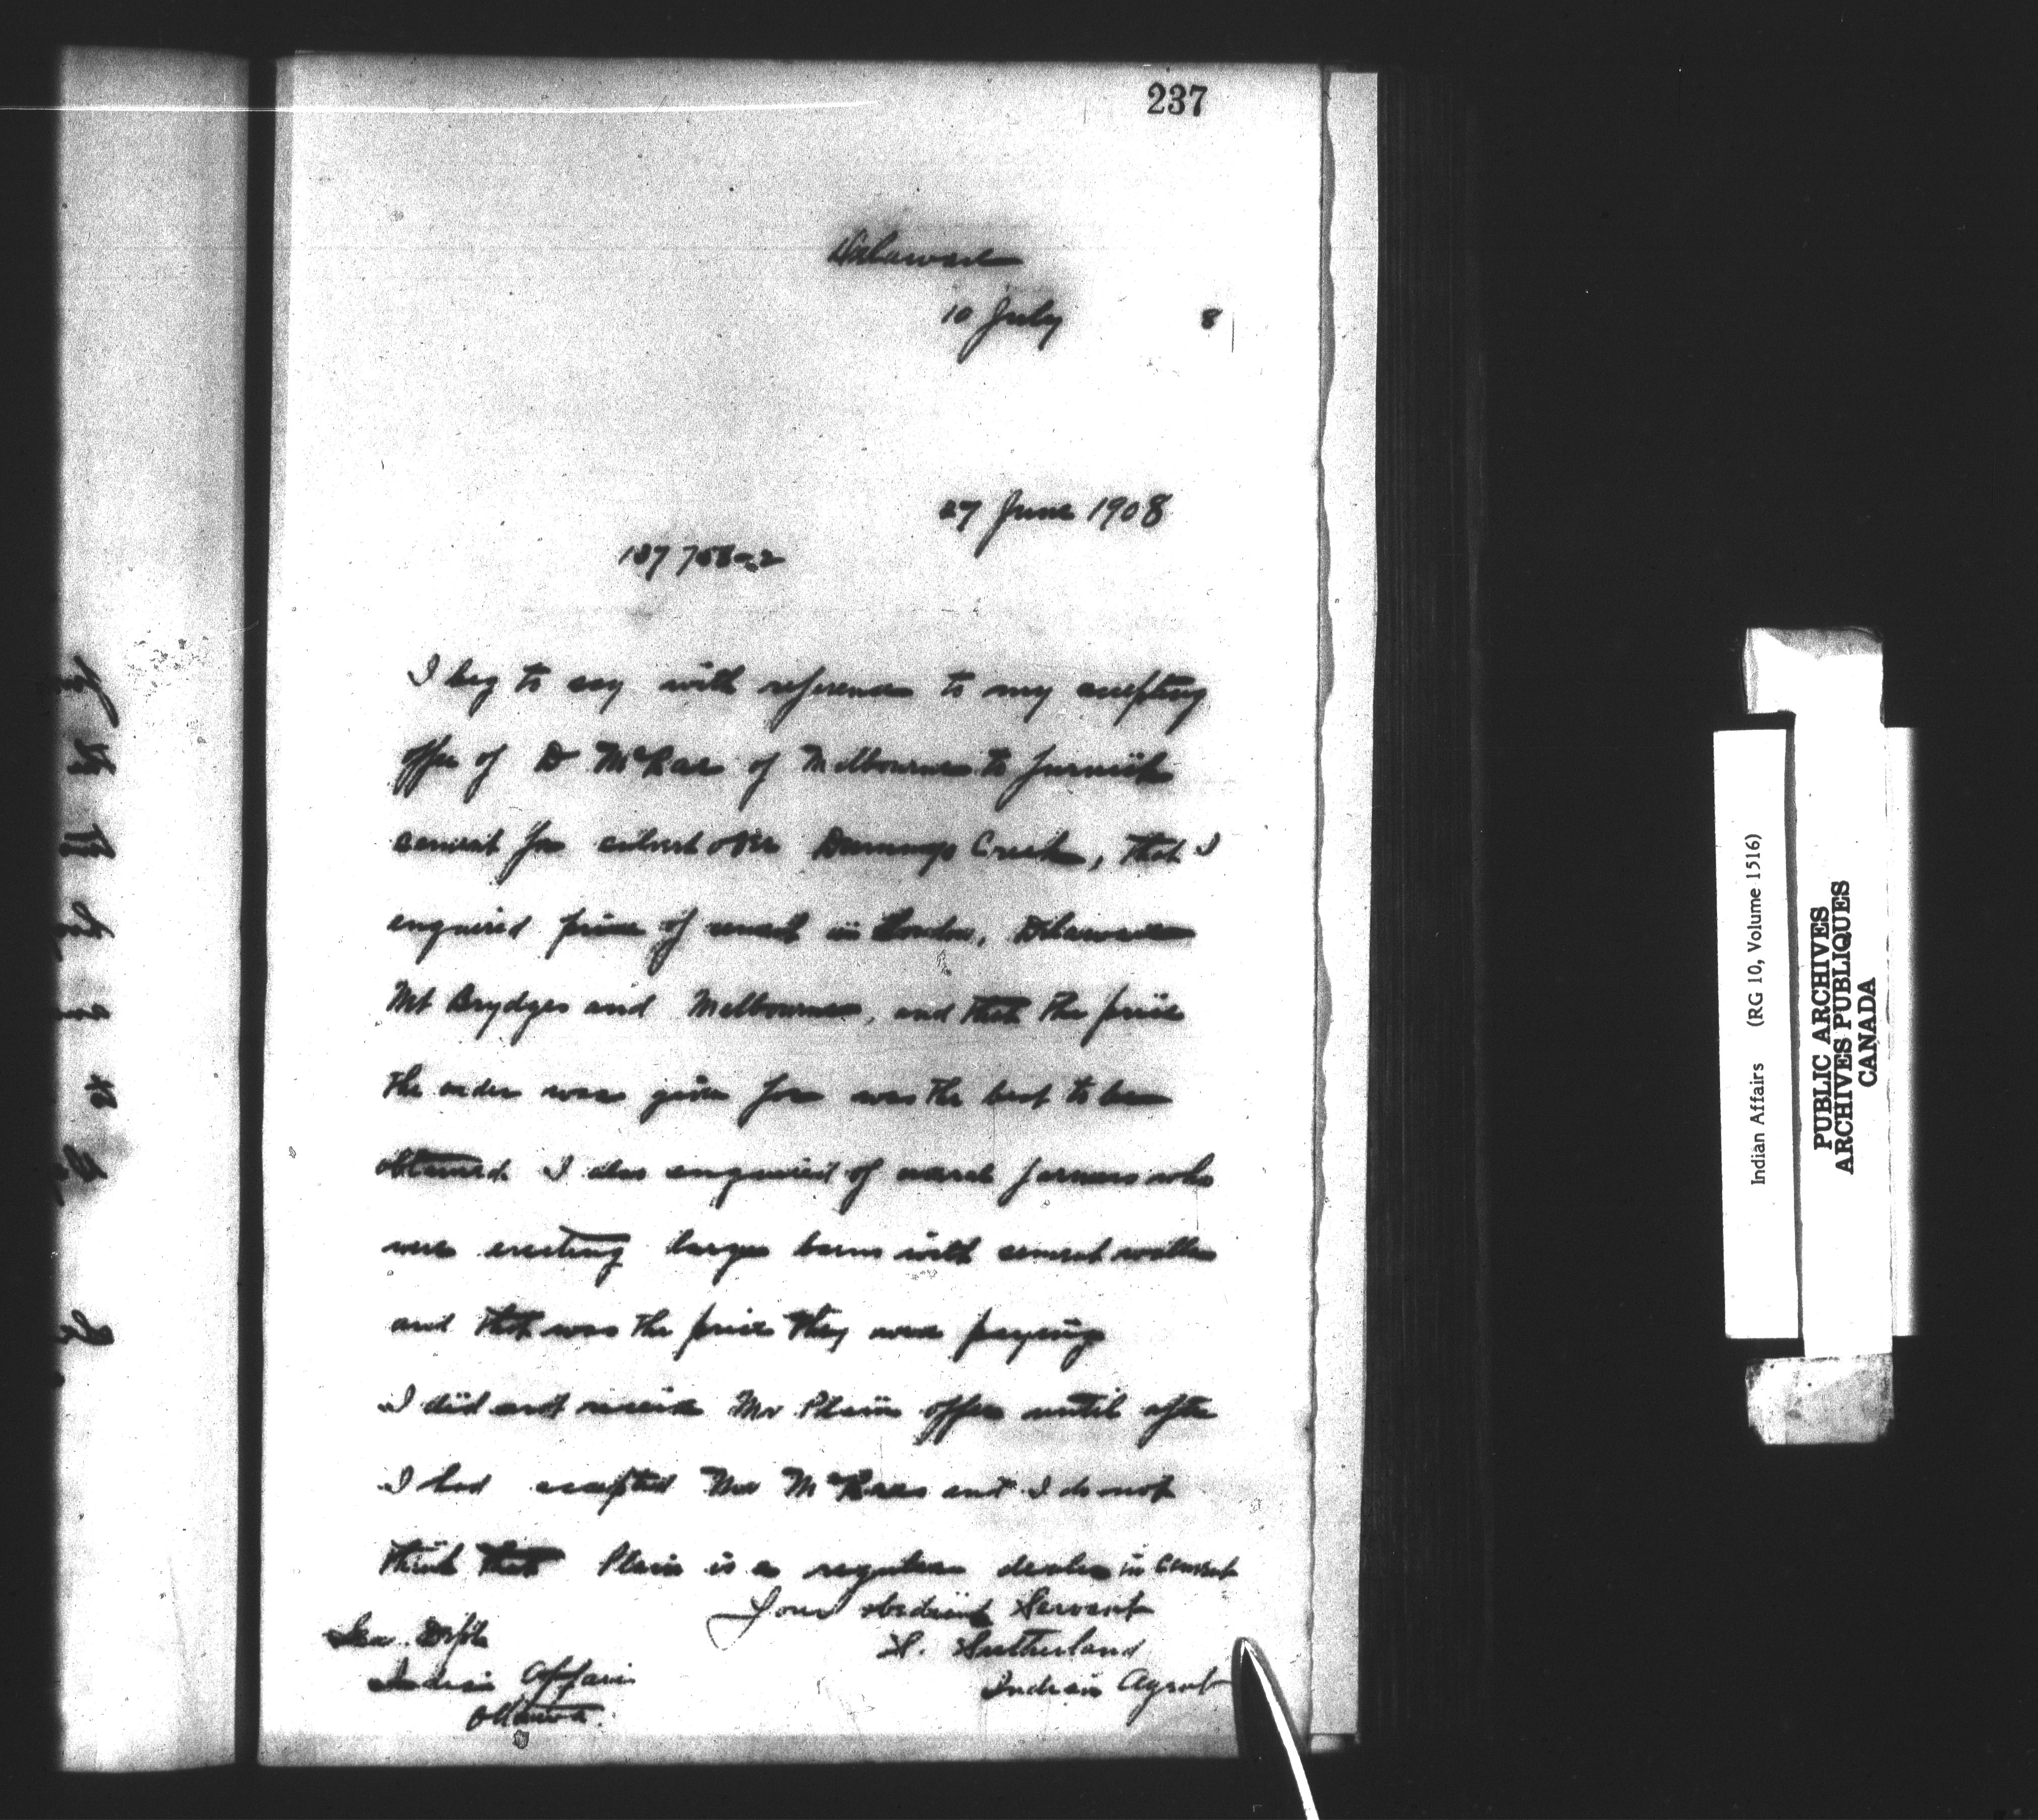 237
Delaware
10 July 8
27 June 1908
I beg to say with reference to my accepting
offer of D McRae of Melbourne to furnish
cement for culvert over Creek, that I
enquired price of cement in London, Delaware
Mt Brydges and Melbourne, and that the price
the order was given for was the best to be
obtained. I also enquired of several farmers who
were erecting large barns with cement walls
and that was the price they were paying
I did not receive Mr Plain offer until after
I had accepted Mr McRaes and I do not
think that Plain is a regular dealer in Cement
Your obedient Servant
S. Sutherland
Indian Agent
Sec. Dept
Indian Affairs
Ottawa.
Indian Affairs (RG 10, Volume 1516)
PUBLIC ARCHIVES
ARCHIVES PUBLIQUES
CANADA